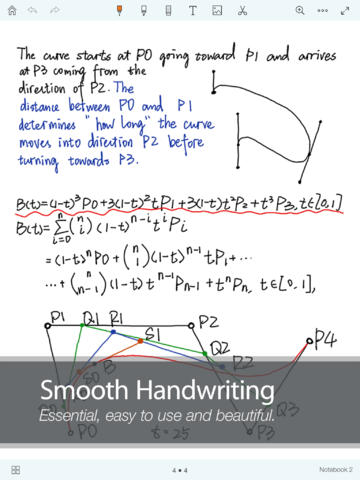 The curve starts at P0 going toward P1 and arrives
at P3 coming from the
direction of P2. The
distance between P0 and P1
determines "how long" the curve
moves into direction P2 before
turning towards P3.
B(t)=(1-t)³P0+3(1-t)²tP1+3(1-t)t²P2+t³P3, t∈[0,1]
B(t)=∑ⁿᵢ₌₀(ⁿᵢ)(1-t)ⁿ⁻ⁱtⁱPᵢ
=(1-t)ⁿP0+(ⁿ₁)(1-t)ⁿ⁻¹tP₁+···
···+(ⁿₙ₋₁)(1-t)tⁿ⁻¹Pₙ₋₁+tⁿPₙ, t∈[0,1],
P1 Q1 R1 P2
S1
Q2
P4
B R2
S0
Smooth Handwriting
Essential, easy to use and beautiful.
Q3
P0 t=25 P3
4 • 4
Notebook 2